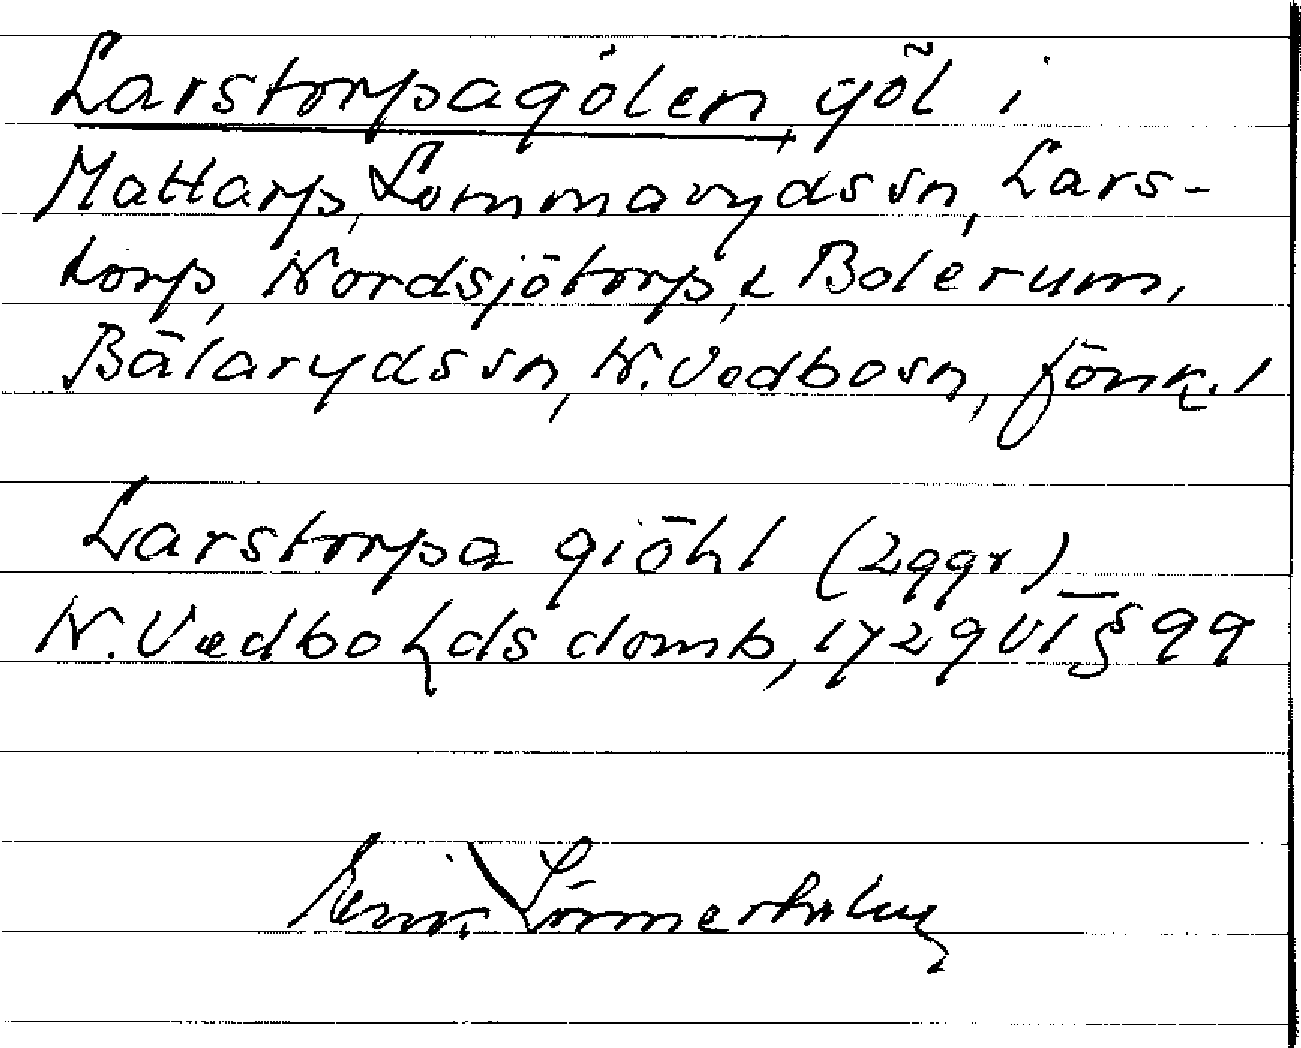 Larstorpagölen, göl i
Mattarp, Lommarydssn, Lars-
torp, Nordsjötorp, & Bolerum,
Bälarydssn, N. Vedbosn, Jönk. l
Larstorpa giöhl (2 ggr)
N. Vedbo hds domb, 1729 VI § 99
Erik